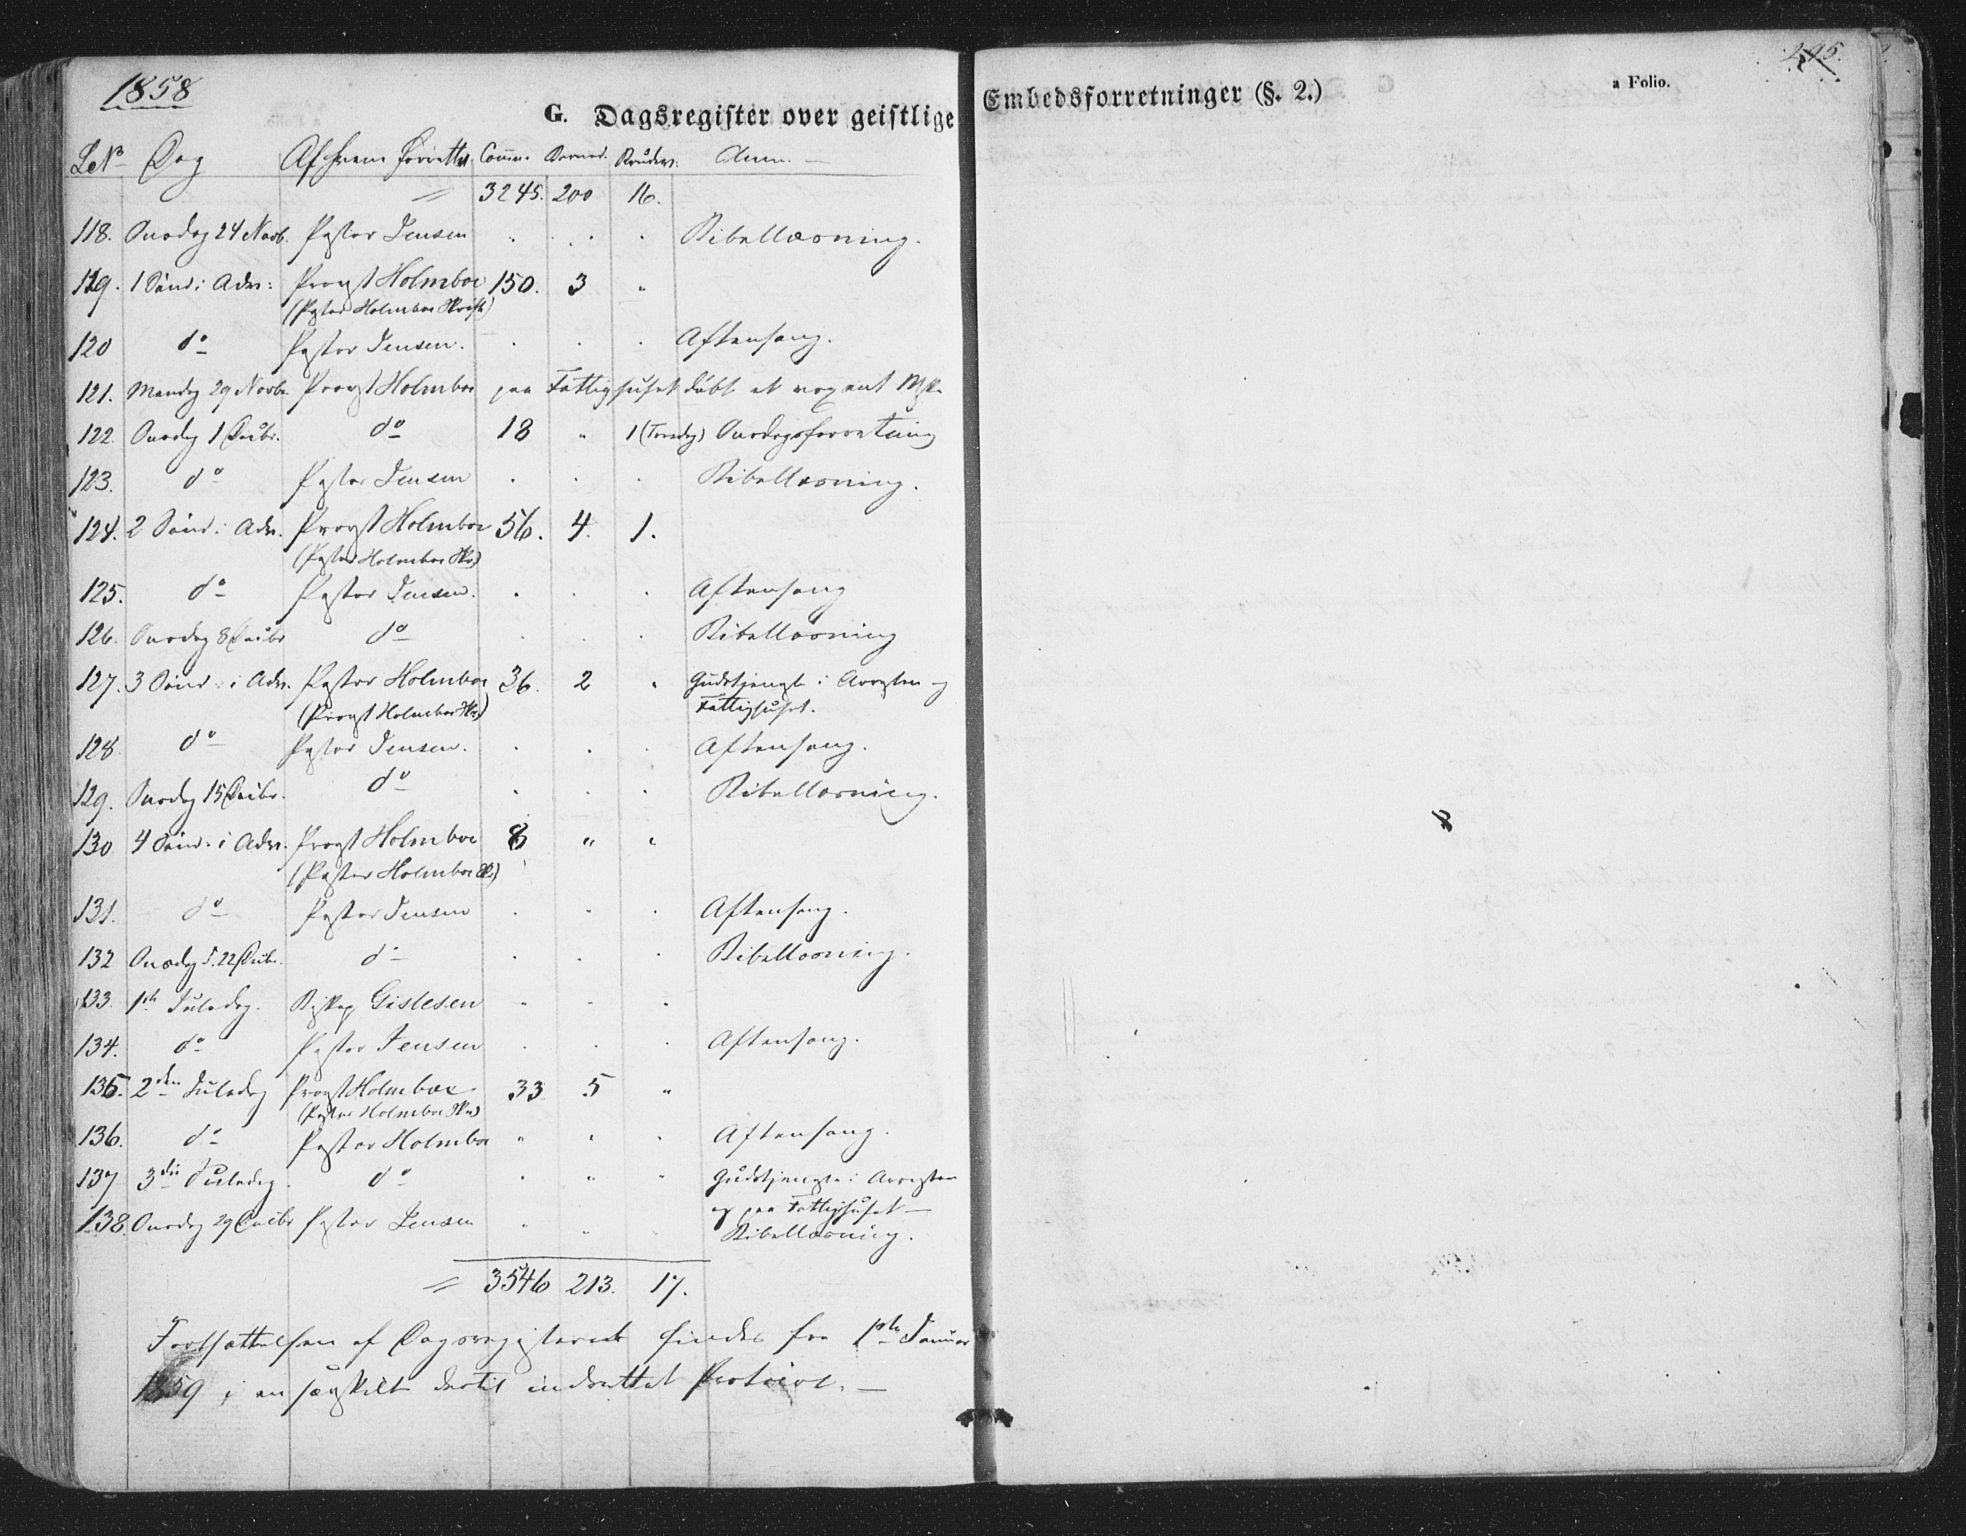 1858
G. Dagsregister over geistlige Embedsforretninger (§. 2.)
a Folio.
295.
Dag Af hvem Forrettet Comm. Anm.
3245. 200 16.
118. Onsdag 24 Novb. Pastor Jensen Bibellæsning.
119. 1 Sönd: i Adv: Provst Holmboe 150. 3 "
(Pastor Holmboe Skrift)
120 do Pastor Jensen. Aftensang.
121. Mandag 29 Novbr. Provst Holmboe paa Fattighuset döbt et voxent
122. Onsdag 1 Decbr. do 18 " 1 (Torsdag) Onsdagsforretning
123. do Pastor Jensen Bibellæsning.
124. 2 Sönd. i Adv. Provst Holmboe 56. 4. 1.
(Pastor Holmboe Skr)
125. do Pastor Jensen. Aftensang
126. Onsdag 8 Decbr do Bibellæsning
127. 3 Sönd. i Adv. Pastor Holmboe 36. 2 " Gudstjeneste i Arresten og
(Provst Holmboe Skr) Fattighuset.
128 do Pastor Jensen. Aftensang.
129. Onsdag 15 Decbr. do Bibellæsning.
130 4 Sönd. i Adv. Provst Holmboe 8 " "
(Pastor Holmboe Sk.)
131. do Pastor Jensen Aftensang.
132 Onsdag d. 22 Decbr. do Bibellæsning.
133. 1ste Juledag. Biskop Gislesen
134. do Pastor Jensen Aftensang.
135. 2den Juledag Provst Holmboe 33 5 "
(Pastor Holmboe Skr)
136. do Pastor Holmboe Aftensang.
137 3die Juledag. do Gudstjeneste i Arresten
og paa Fattighuset —
138. Onsdag 29 Decbr Pastor Jensen Bibellæsning.
3546 213. 17.
Fortsættelsen af Dagsregisteret findes fra 1ste Januar
1859 i en særskilt dertil indrettet Protocol. —